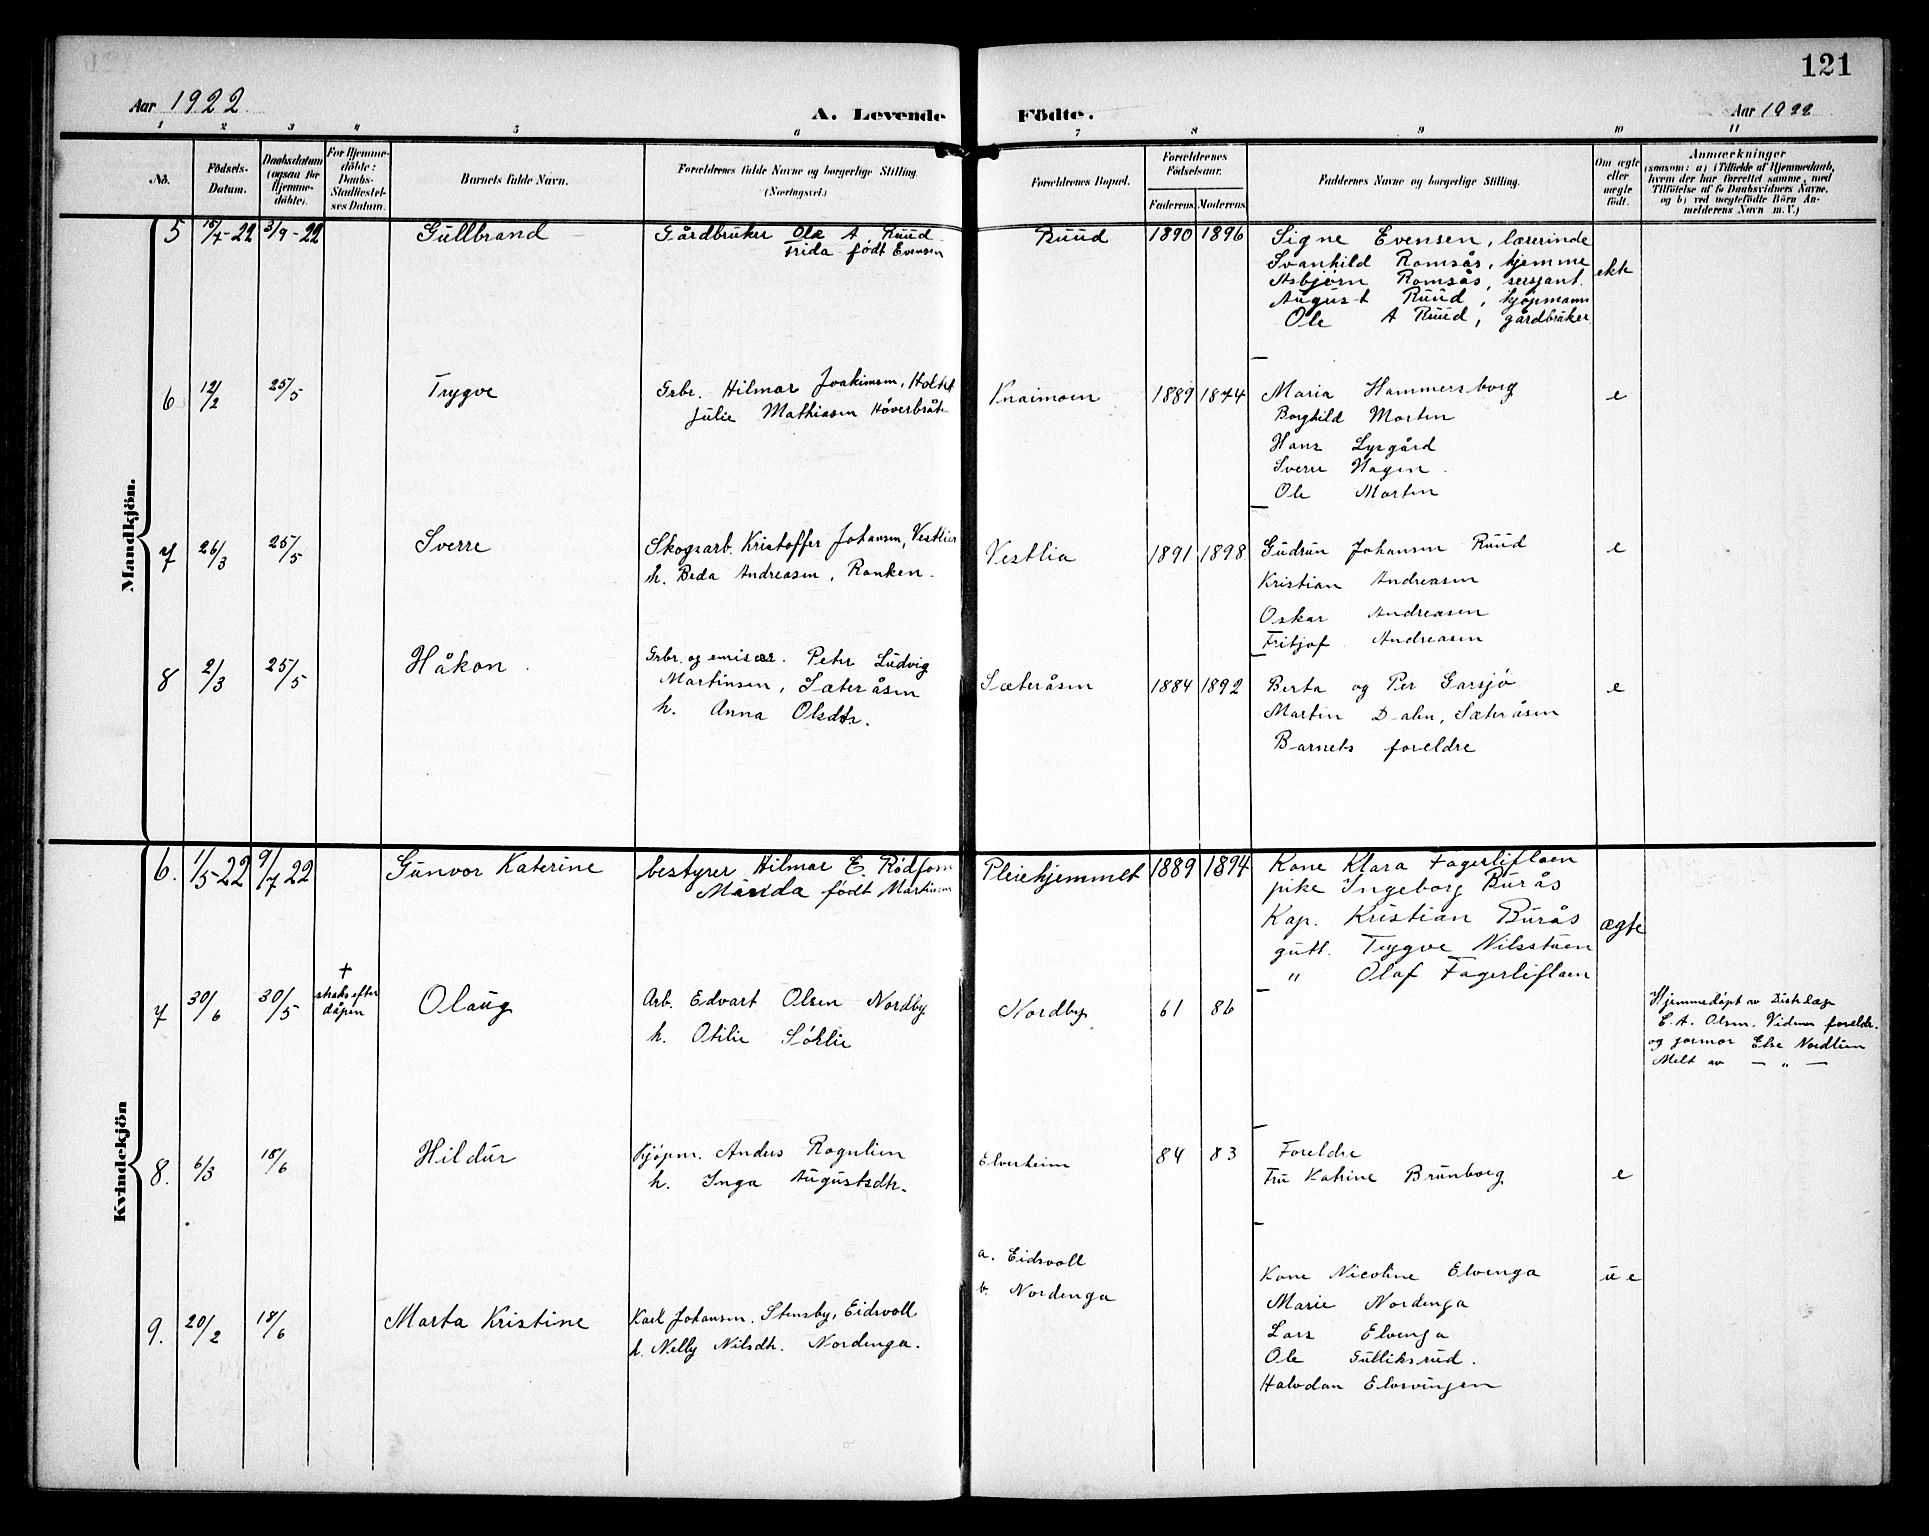 121
Aar 1922
A. Levende Födte.
Aar 1922
1 2 3 4 5 6 7 8 9 10 11
No.
Födsels-
Datum.
Daabsdatum
(ogsaa for
Hjemme-
döbte).
For Hjemme-
döbte:
Daabs-
Stadfæstel-
ses Datum.
Barnets fulde Navn.
Forældrenes fulde Navne og borgerlige Stilling
(Næringsvei.)
Forældrenes Bopæl.
Forældrenes
Födselsaar.
Faderens. Moderens.
Faddernes Navne og borgerlige Stilling.
Om ægte
eller
uægte
født.
Anmærkninger
(saasom: a) i Tilfælde af Hjemmedaab,
hvem der har forrettet samme, med
Tilföielse af to Daabsvidners Navne.
og b) ved uægtefödte Börn An-
melderens Navn m. V.)
Mandkjön.
5 15/7-22 3/9-22 Gullbrand
Gårdbruker Ole A Ruud
Frida født Evensen
Ruud 1890 1896
Signe Evensen, lærerinde
Svanhild Romsås, hjemme
Asbjörn Romsås, sersjant.
August Ruud, kjöpmann
Ole A Ruud, gårdbruker
ekte
6 12/2 25/5 Trygve
Grbr. Hilmar Joakimsen, Holtet
Julie Mathiasen Höverbråt
Knaimoen 1889 1874
Maria Hammersborg
Borghild Morten
Hans Lysgård
Sverre Hagen
Ole Morten
e
7 26/3 25/5 Sverre
Skogsarb. Kristoffer Johansen, Vestlien
h. Beda Andreasen, Ronken.
Vestlia 1891 1898
Gudrun Johansen Ruud
Kristian Andreasen
Oskar Andreasen
Fritjof Andreasen
e
8 2/3 25/5 Håkon
Grbr. og emisær. Peter Ludvig
Martinsen, Sæteråsen
h. Anna Olsdtr.
Sæteråsen 1884 1892
Berta og Per Garsjö
Martin Dalen, Sæteråsen
Barnets foreldre
e
Kvindekjön
6. 1/5-22 9/7 22 Gunvor Katerine
bestyrer Hilmar E. Rödfoss
født Martinsen
Pleiehjemmet 1889 1894
Kone Klara Fagerliflaen
pike Ingeborg Burås
Kap. Kristian Burås
gutt. Trygve Nilsstuen
" Olaf Fagerliflaen
ægte
7 30/6 30/5
† straks efter
dåpen
Olaug
Arb. Edvart Olsen Nordby
h. Otilie Sörlie
Nordby 61 86
Hjemmedöpt av Distr.læge
E. A. Olsen. Vidner foreldr.
og jormor Else Nordlien
Melt av — " —
8. 6/3 18/6 Hildur
Kjöpm. Anders Rognlien
h. Inga Augustsdtr.
Elverheim 84 83
Foreldre
Fru Katrine Brunborg
e
9. 20/2 18/6 Marta Kristine
Karl Johansen. Stensby, Eidsvoll
h. Nelly Nilsdtr. Nordenga.
a. Eidsvoll
b. Nordenga
Kone Nicoline Elvenga
Marie Nordenga
Lars Elvenga
Ole Gulliksrud.
Halvdan Elvesvingen
u e